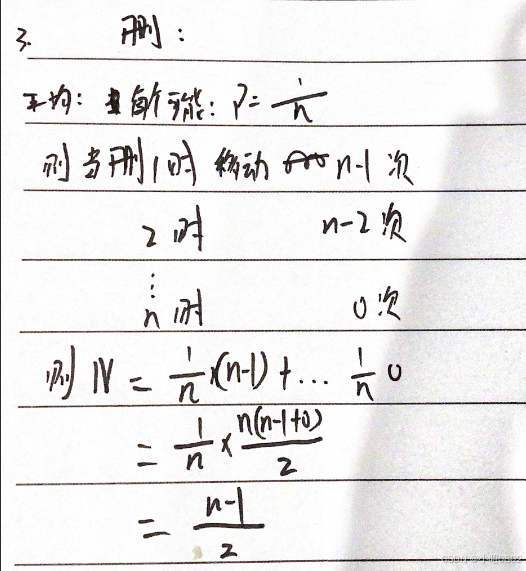 3. 删:
平均: 每个可能: P = 1/n
则当删1时 移动 n-1 次
2时 n-2次
⋮
n时 0次
则 N = 1/n ×(n-1) + ... 1/n 0
= 1/n × n(n-1+0)/2
= n-1/2